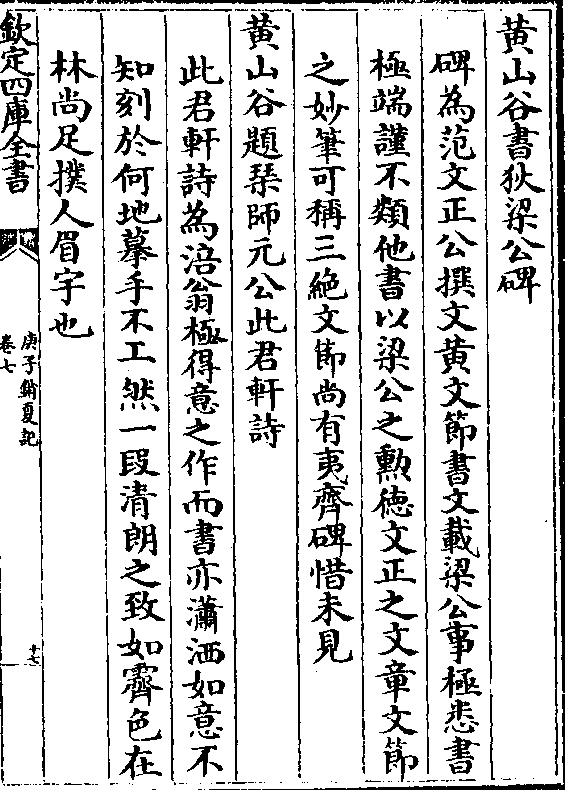 黄山谷書狄梁公碑
碑為范文正公撰文黄文節書文載梁公事極悉書
極端謹不類他書以梁公之勲徳文正之文章文節
之妙筆可稱三絶文節尚有夷齊碑惜未見
黄山谷題琹師元公此君軒詩
此君軒詩為涪翁極得意之作而書亦瀟洒如意不
知刻於何地摹手不工然一段清朗之致如霽色在
林尚足撲人眉宇也
欽定四庫全書
庚子銷夏記
卷七
十七